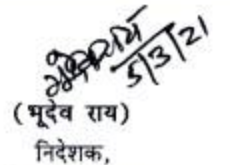 5/3/21
(भूदेव राय)
निदेशक,